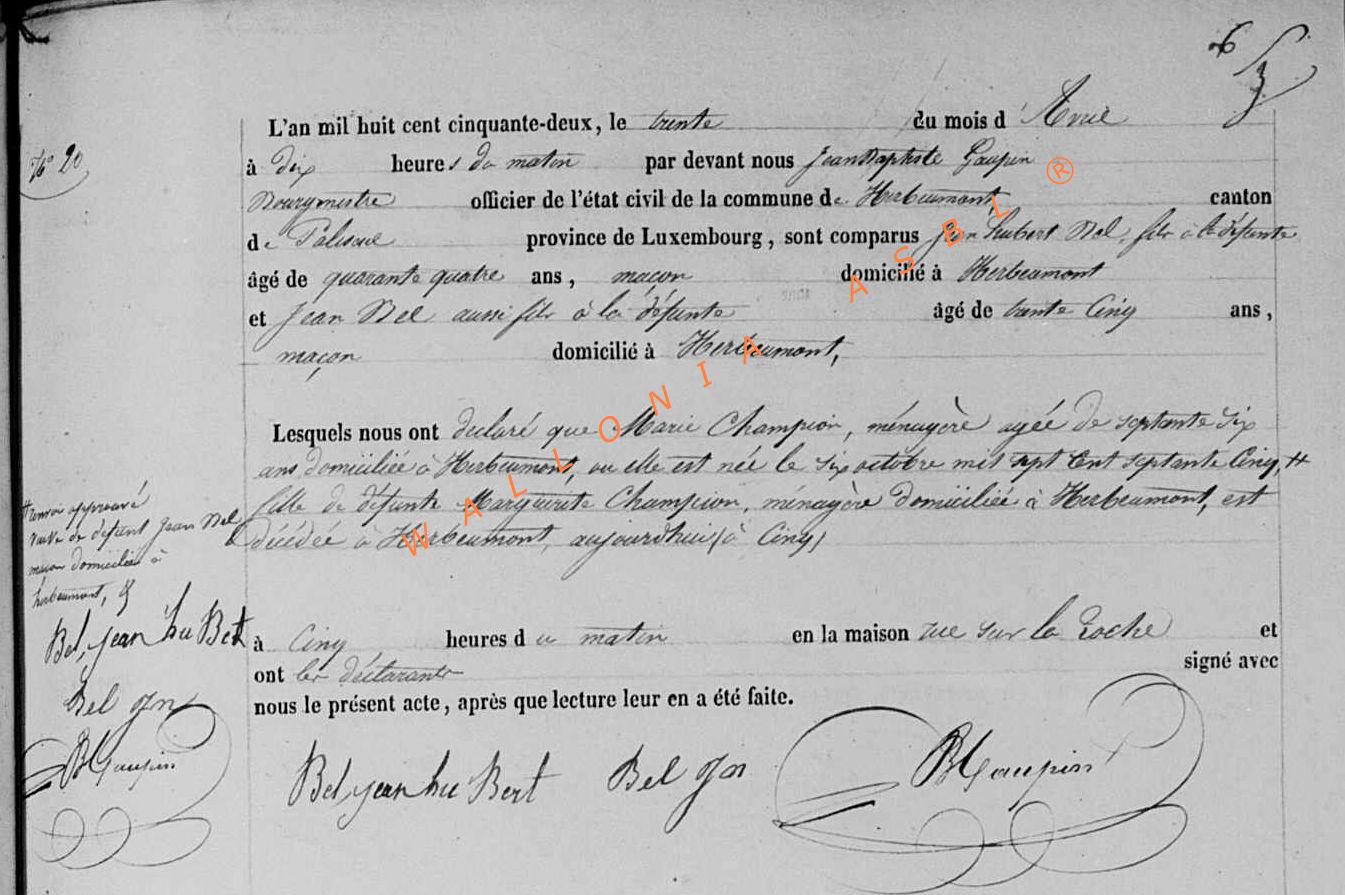 6
3
L'an mil huit cent cinquante-deux, le trente du mois d'Avril
N° 20
à dix heures du matin par devant nous Jean Baptiste Gaupin
Bourgmestre officier de l'état civil de la commune de Herbeumont canton
de Paliseul province de Luxembourg, sont comparus Jean hubert Bel, fils à la défunte
âgé de quarante quatre ans, maçon domicilié à Herbeumont
et Jean Bel aussi fils à la défunte âgé de trente Cinq ans,
maçon domicilié à Herbeumont,
Lesquels nous ont déclaré que Marie Champion, ménagère agée de septante six
ans domiciliée à Herbeumont, ou elle est née le six octobre mil sept Cent septante Cinq, #
fille de défunte Marguerite Champion, ménagère domiciliée à Herbeumont, est
décédée à Herbeumont, aujourdhui (à Cinq)
# renvoi approuvé
veuve de défunt Jean Bel
maçon domicilié à
herbeumont,
Bel, jean hu Bert
Bel Jn
BGaupin
à Cinq heures du matin en la maison rue sur la Roche et
ont les déclarants signé avec
nous le présent acte, après que lecture leur en a été faite.
Bel, jean hu Bert Bel Jn BGaupin
WALLONIA ASBL ®